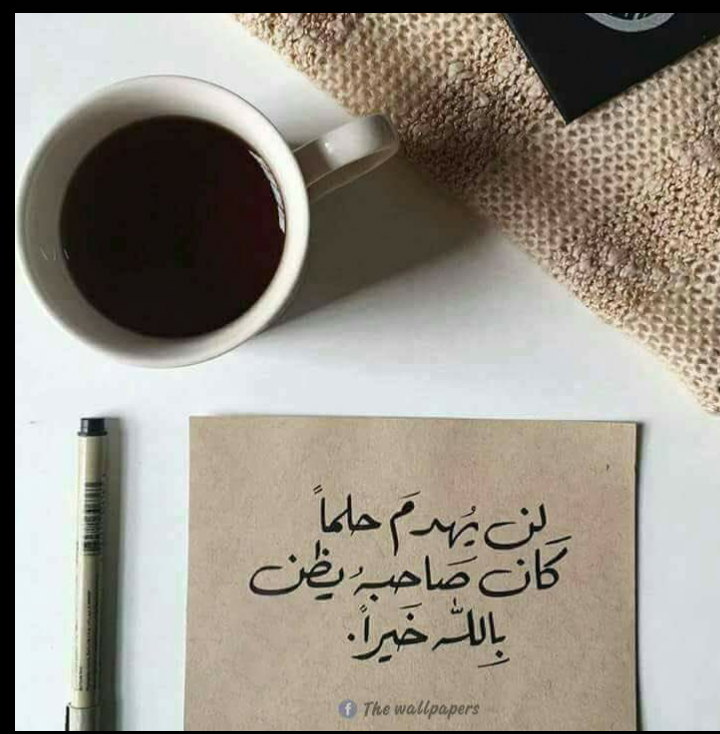 لن يُهدمَ حلماً
كَان صَاحبهُ يظن
بِاللّٰه خَيراً.
The wallpapers